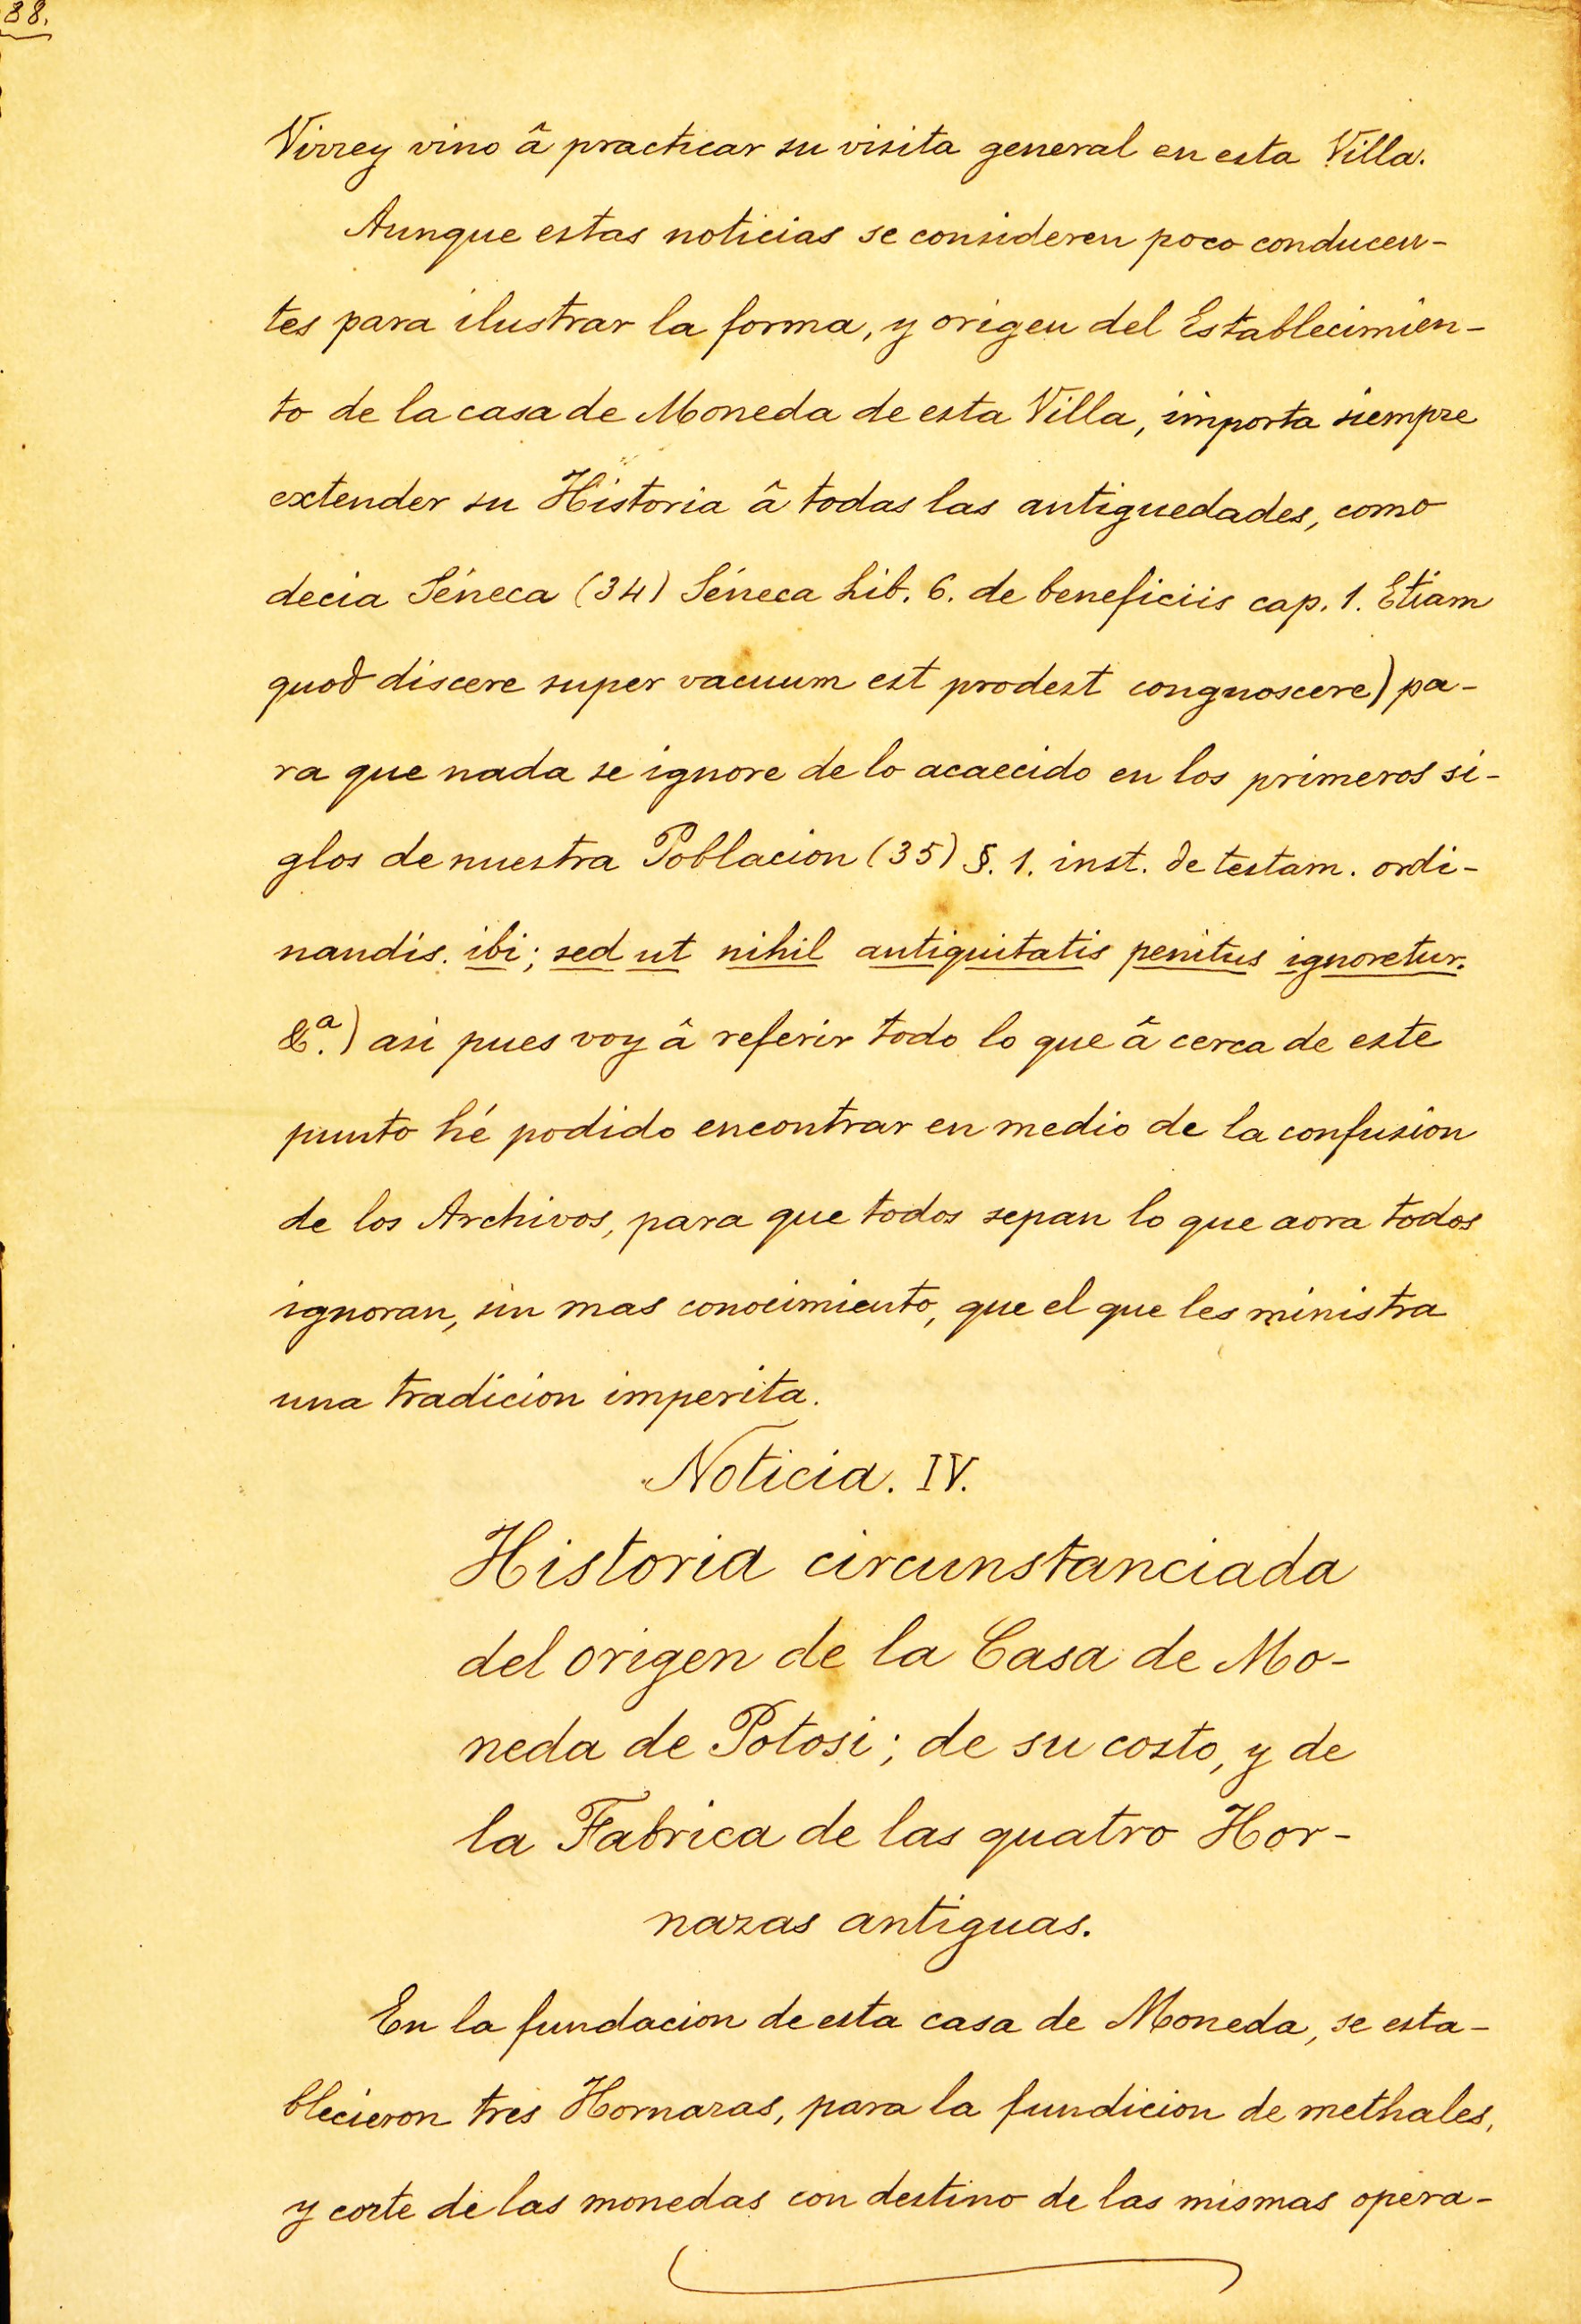 38.
Virrey vino â practicar su visita general en esta Villa.
Aunque estas noticias se consideren poco conducen-
tes para ilustrar la forma, y origen del Establecimien-
to de la casa de Moneda de esta Villa, importa siempre
extender su Historia â todas las antiguedades, como
decia Séneca (34) Séneca Lib. 6. de beneficiis cap. 1. Etiam
quod discere super vacuum est prodest congnoscere) pa-
ra que nada se ignore de lo acaecido en los primeros si-
glos de nuestra Poblacion (35) §. 1. inst. de testam. ordi-
nandis. ibi; sed ut nihil antiquitatis penitus ignoretur.
&.ª) asi pues voy â referir todo lo que â cerca de este
punto hé podido encontrar en medio de la confusion
de los Archivos, para que todos sepan lo que aora todos
ignoran, sin mas conocimiento, que el que les ministra
una tradicion imperita.
Noticia. IV.
Historia circunstanciada
del origen de la Casa de Mo-
neda de Potosi; de su costo, y de
la Fabrica de las quatro Hor-
nazas antiguas.
En la fundacion de esta casa de Moneda, se esta-
blecieron tres Hornazas, para la fundicion de methales,
y corte de las monedas con destino de las mismas opera-